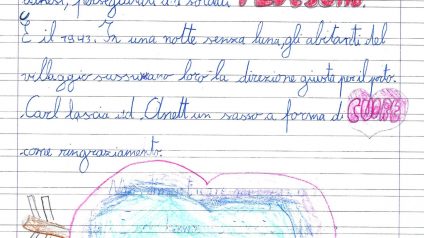 perseguitati dai soldati TEDESCHI.
È il 1943. In una notte senza luna, gli abitanti del
villaggio sussurrano loro la direzione giusta per il porto.
Carl lascia ad Anett un sasso a forma di CUORE
come ringraziamento.